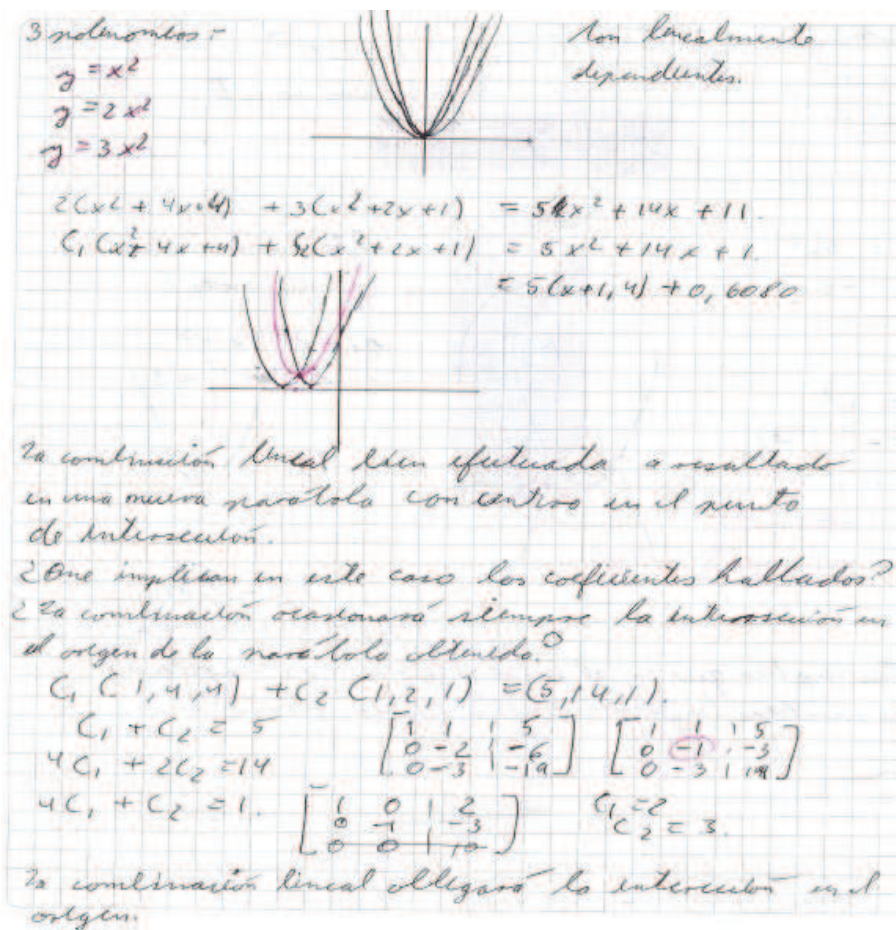 3 polinomios:-
Son linealmente
dependientes.
y = x²
y = 2x²
y = 3x²
2(x² + 4x+4) + 3(x²+2x+1) = 5x² + 14x + 11.
C₁(x²+ 4x+4) + C₂(x²+2x+1) = 5x²+14x+1.
= 5(x+1,4) + 0,6080
La combinación lineal bien efectuada a resultado
en una nueva parábola con centro en el punto
de intersección.
¿Que implican en este caso los coeficientes hallados?
¿La combinación ocasionará siempre la intersección en
el origen de la parábola obtenida?
C₁ (1,4,4) + C₂ (1,2,1) = (5,14,1).
C₁ + C₂ = 5
4C₁ + 2C₂ = 14
4C₁ + C₂ = 1.
[1 1 | 5
0 -2 | -6
0 -3 | -19]
[1 1 | 5
0 -1 | -3
0 -3 | 19]
[1 0 | 2
0 -1 | -3
0 0 | 10]
C₁ = 2
C₂ = 3.
La combinación lineal obligará la intersección en el
origen.